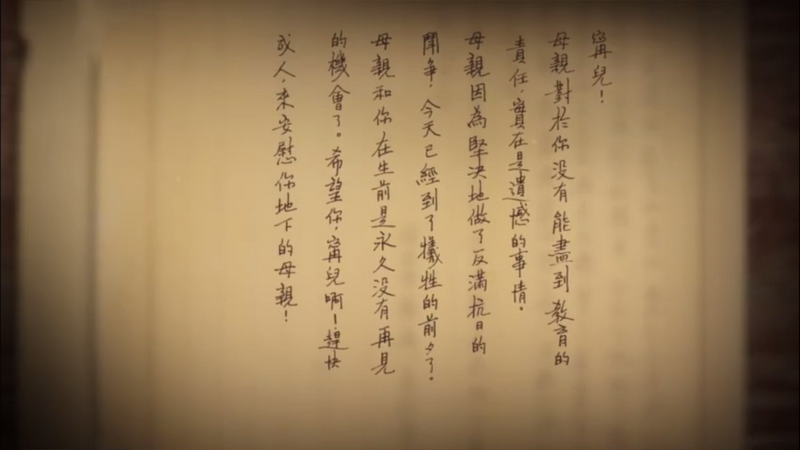 甯兒！
母親對於你没有能盡到教育的
責任，實在是遺憾的事情。
母親因為堅決地做了反滿抗日的
鬥爭，今天已經到了犧牲的前夕了。
母親和你在生前是永久没有再見
的機會了。希望你，甯兒啊！趕快
成人來安慰你地下的母親！